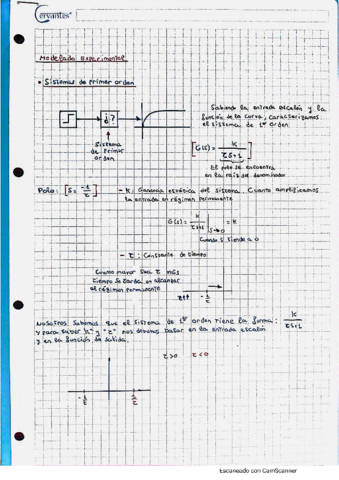 Cervantes
Modelado Experimental
• Sistemas de Primer orden
¿?
Sistema
de Primer
orden
Sabiendo la entrada escalón y la
función de la curva, caracterizamos
el sistema de 1er orden
[G(s) = K / τs+1]
El polo se encuentra
en la raíz del denominador
Polo: [s = -1/τ]
- K: Ganancia estática del sistema. Cuanto amplificamos
la entrada en régimen permanente
G(s) = K / τs+1 | s→0 = K
Cuando s tiende a 0
- τ: Constante de tiempo
Cuanto mayor sea τ más
tiempo se tarda en alcanzar
el régimen permanente
τ↑↑ -1/τ
Nosotros sabemos que el sistema de 1er orden tiene la forma: K / τs+1
y para saber "K" y "τ" nos debemos basar en la entrada escalón
y en la función de salida.
τ>0 τ<0
-1/τ
Escaneado con CamScanner